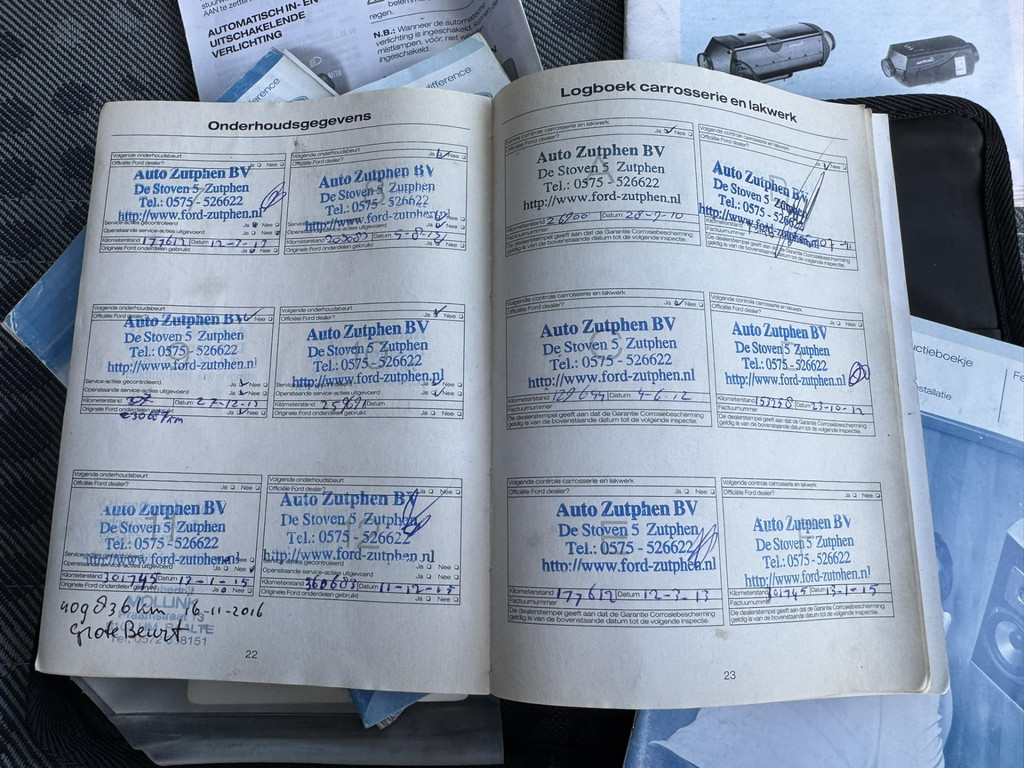 AAN te zetten
AUTOMATISCH IN- EN
UITSCHAKELENDE
VERLICHTING
regen.
N.B.: Wanneer de automatische
verlichting is ingeschakeld,
mistlampen, vóór, niet
ingeschakeld.
ifference
Onderhoudsgegevens
Volgende onderhoudsbeurt
Officiële Ford dealer? Ja Nee
Auto Zutphen BV
De Stoven 5 Zutphen
Tel.: 0575 - 526622
http://www.ford-zutphen.nl
Service-acties gecontroleerd Ja Nee
Openstaande service-acties uitgevoerd Ja Nee
Kilometerstand 177612 Datum
Originele Ford onderdelen gebruikt Ja Nee
Volgende onderhoudsbeurt
Officiële Ford dealer? Ja Nee
Auto Zutphen BV
De Stoven 5 Zutphen
Tel.: 0575 - 526622
http://www.ford-zutphen.nl
Openstaande service-acties uitgevoerd
Kilometerstand Datum
Originele Ford onderdelen gebruikt Ja Nee
Volgende onderhoudsbeurt
Officiële Ford dealer? Ja Nee
Auto Zutphen BV
De Stoven 5 Zutphen
Tel.: 0575 - 526622
http://www.ford-zutphen.nl
Service-acties gecontroleerd Ja Nee
Openstaande service-acties uitgevoerd Ja Nee
Kilometerstand Datum 27-12-13
Originele Ford onderdelen gebruikt Ja Nee
Volgende onderhoudsbeurt
Officiële Ford dealer?
Auto Zutphen BV
De Stoven 5 Zutphen
Tel.: 0575 - 526622
http://www.ford-zutphen.nl
Openstaande service-acties uitgevoerd Ja Nee
Kilometerstand Datum
Originele Ford onderdelen gebruikt Ja Nee
Volgende onderhoudsbeurt
Officiële Ford dealer? Ja Nee
Auto Zutphen BV
De Stoven 5 Zutphen
Tel.: 0575 - 526622
http://www.ford-zutphen.nl
Openstaande service-acties uitgevoerd
Kilometerstand 301745 Datum 12-1-15
Originele Ford onderdelen gebruikt Ja Nee
409836 km 16-11-2016
Grote Beurt
Volgende onderhoudsbeurt
Officiële Ford dealer? Ja Nee
Auto Zutphen BV
De Stoven 5 Zutphen
Tel.: 0575 - 526622
http://www.ford-zutphen.nl
Openstaande service-acties uitgevoerd Ja Nee
Kilometerstand 360683 Datum 11-12-15
Originele Ford onderdelen gebruikt Ja Nee
22
Logboek carrosserie en lakwerk
Volgende controle carrosserie en lakwerk
Officiële Ford dealer? Ja Nee
Auto Zutphen BV
De Stoven 5 Zutphen
Tel.: 0575 - 526622
http://www.ford-zutphen.nl
Kilometerstand 26900 Datum 28-9-10
Factuurnummer
De dealerstempel geeft aan dat de Garantie Corrosiebescherming
geldig is van de bovenstaande datum tot de volgende inspectie.
Volgende controle carrosserie en lakwerk
Officiële Ford dealer?
Auto Zutphen BV
De Stoven 5 Zutphen
Tel.: 0575 - 526622
http://www.ford-zutphen.nl
Factuurnummer
De dealerstempel geeft aan dat de Garantie Corrosiebescherming
geldig is van de bovenstaande datum tot de volgende inspectie.
Volgende controle carrosserie en lakwerk
Officiële Ford dealer? Ja Nee
Auto Zutphen BV
De Stoven 5 Zutphen
Tel.: 0575 - 526622
http://www.ford-zutphen.nl
Kilometerstand Datum 4-6-12
Factuurnummer
De dealerstempel geeft aan dat de Garantie Corrosiebescherming
geldig is van de bovenstaande datum tot de volgende inspectie.
Volgende controle carrosserie en lakwerk
Officiële Ford dealer? Ja Nee
Auto Zutphen BV
De Stoven 5 Zutphen
Tel.: 0575 - 526622
http://www.ford-zutphen.nl
Kilometerstand 153258 Datum 23-10-12
Factuurnummer
De dealerstempel geeft aan dat de Garantie Corrosiebescherming
geldig is van de bovenstaande datum tot de volgende inspectie.
Volgende controle carrosserie en lakwerk
Officiële Ford dealer? Ja Nee
Auto Zutphen BV
De Stoven 5 Zutphen
Tel.: 0575 - 526622
http://www.ford-zutphen.nl
Kilometerstand 177612 Datum 12-3-13
Factuurnummer
De dealerstempel geeft aan dat de Garantie Corrosiebescherming
geldig is van de bovenstaande datum tot de volgende inspectie.
Volgende controle carrosserie en lakwerk
Officiële Ford dealer? Ja Nee
Auto Zutphen BV
De Stoven 5 Zutphen
Tel.: 0575 - 526622
http://www.ford-zutphen.nl
Kilometerstand 301745 Datum 13-1-15
Factuurnummer
De dealerstempel geeft aan dat de Garantie Corrosiebescherming
geldig is van de bovenstaande datum tot de volgende inspectie.
23
uctieboekje
stallatie